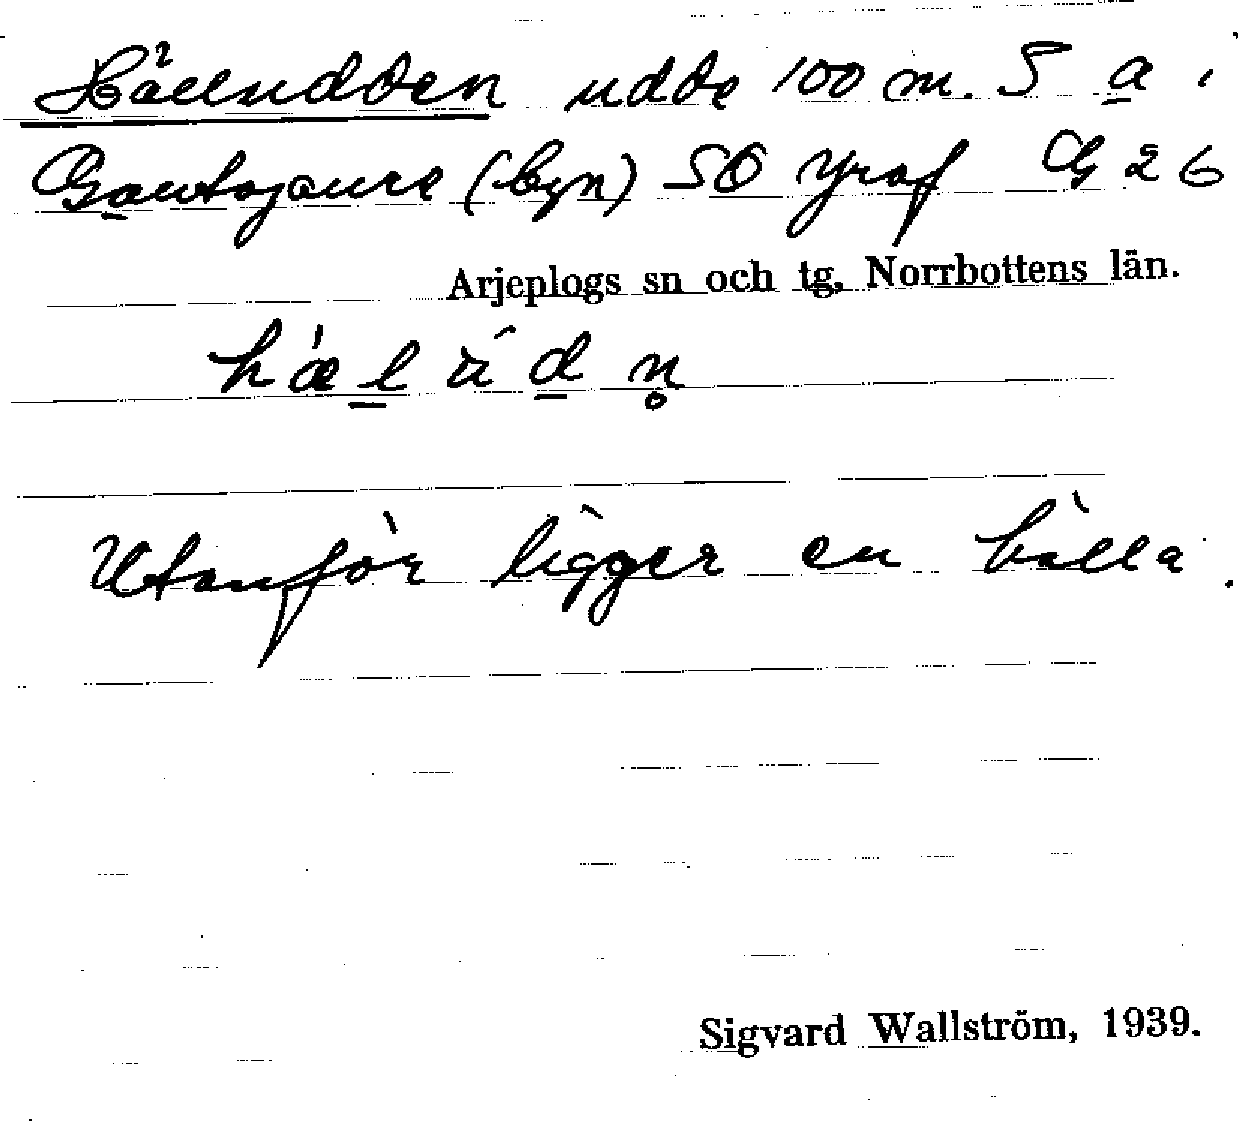 Hälludden udde 100 m. S a i
Gautojaure (byn) SO
G 26
Arjeplogs sn och tg, Norrbottens län.
Utanför ligger en hälla.
Sigvard Wallström, 1939.